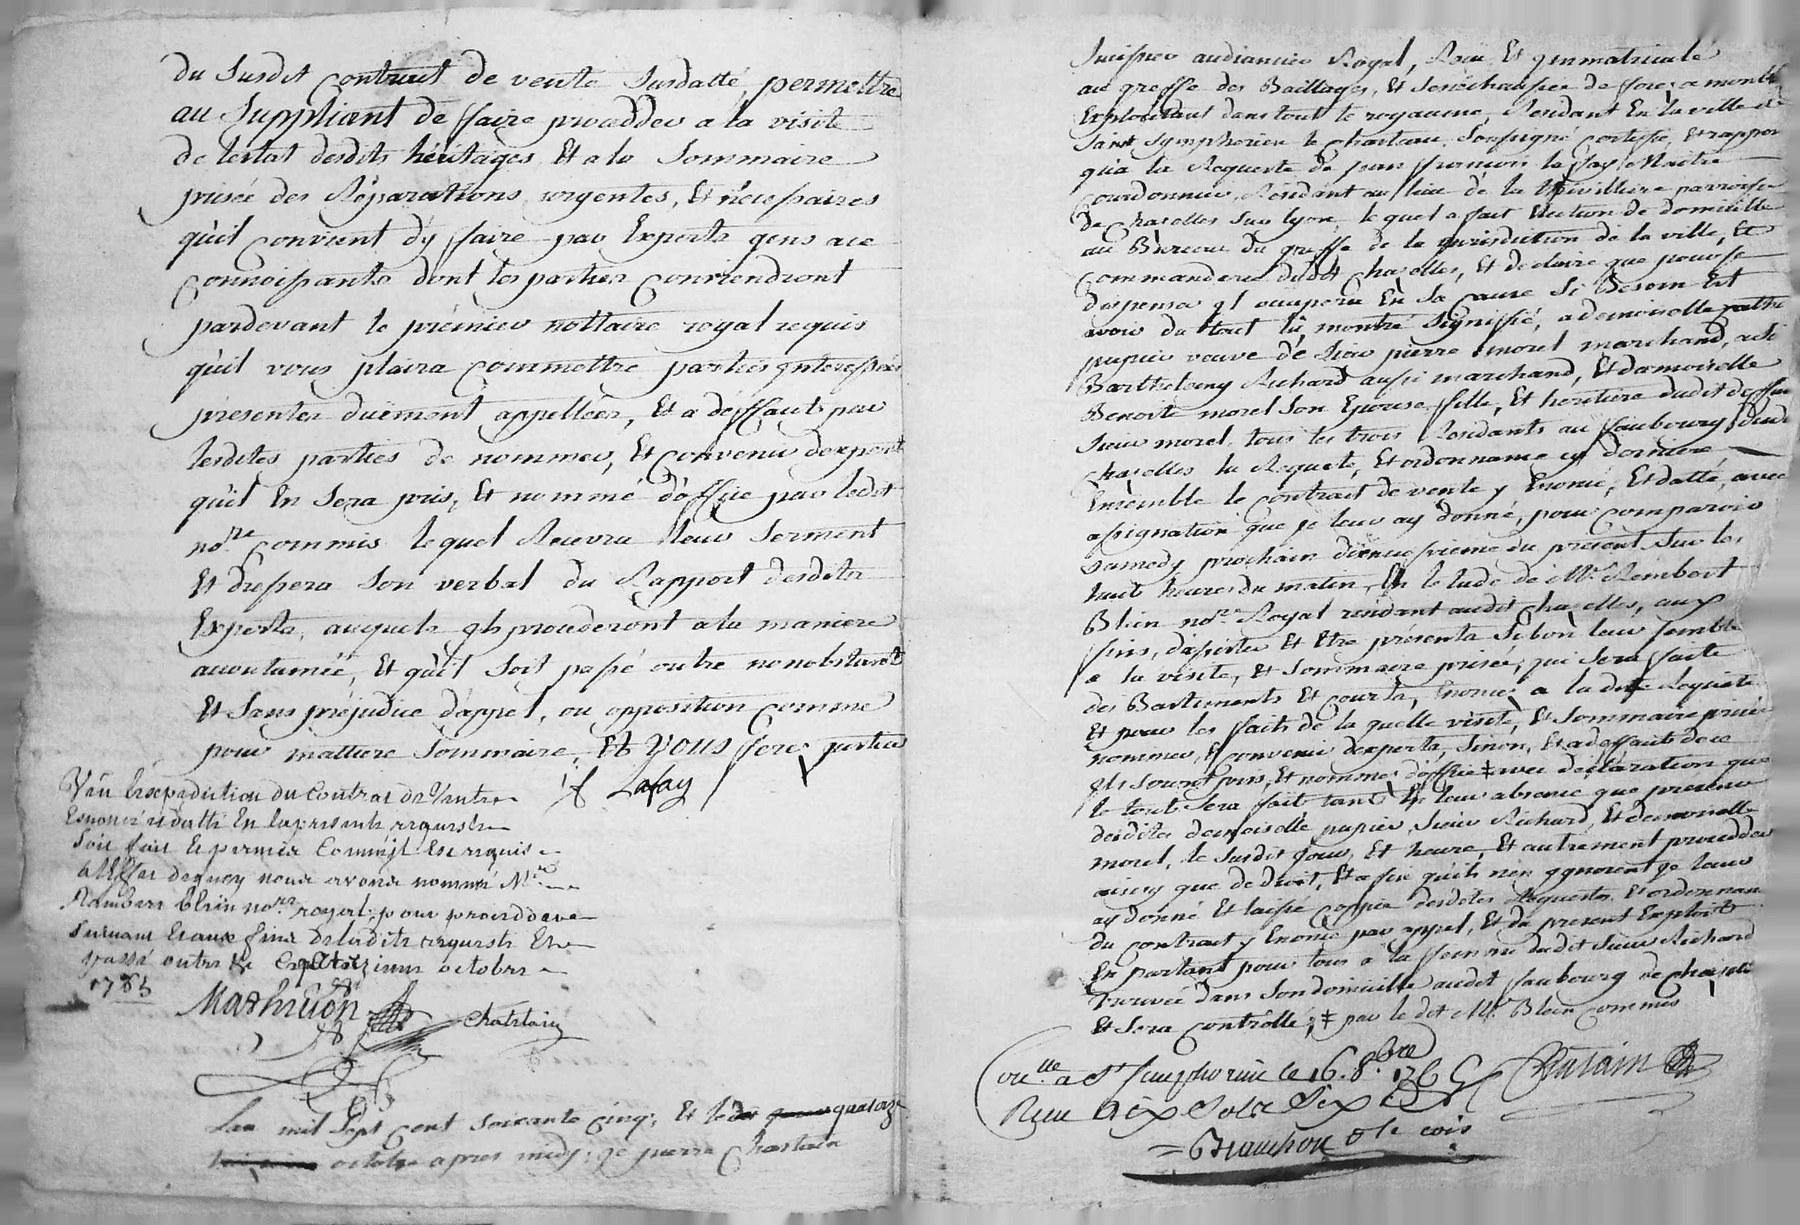 du Susdit Contract de vente Susdatté, permettre
au Suppliant de ffaire proceddev a la visite
de lestat desdits héritages, Et a la Sommaire
prisée des Réparations urgentes, Et nécessaires
qu'il Convient d'y ffaire par Experts gens a ce
Connoissants dont les parties Conviendront
pardevant le prémiev nottaire royal requis
quil vous plaira Commettre parties interessées
présentes duëment appellées, Et a deffaut par
lesdites parties de nommer, Et Convenir dexperts
quil En Sera pris, Et nommé d'office par ledit
nore Commis lequel Recevra Leur Serment
Et dressera Son verbal du Rapport desdits
Experts, auquels ils procederont a la maniere
accoutumée, Et qu'il Soit passé outre nonobstant
Et Sans préjudice d'appel, ou opposition comme
pour mattiere Sommaire, Et Vous ferez justice
Lafay
Veu Lexpedition du Contrat de Vente
Enoncé et datté En la presente requeste
Soit fait
a Leffet dequoy nous avons nommé Me
Rambert blein nore royal pour proceddera
Suivant Et aux fins de ladite requeste Et
passé outre octobre
1765
Mathevon
Chatelain
Lan mil Sept Cent Soixante Cinq, Et le quatorze
octobre apres midy, je pierre Chastain
huissier audiancier Royal, Reçu Et immatriculé
au greffe des Baillages, Et Senechaussée de forez a montb
Exploittant dans tout le royaume, Résidant En la ville de
Saint Symphorien le chasteau, Soussigné Certiffie, Et rapporte
qu'a la Requeste de jean françois lafay Maitre
Courdonnier, Résidant au lieu de la Thivilliere parroisse
de Chazelles Sur lyon, lequel a fait Election de domicille
au Bureau du greffe de la jurisdiction de la ville, Et
Commanderie dudit Chazelles, Et declare que pour se
dispenser il occupera En Sa Cause Si Besoin Est
avoir du tout lû, montré Signiffié, a demoiselle
pupier veuve de Sieur pierre morel marchand, a Sr
Barthelemy Richard aussi marchand, Et demoiselle
Benoite morel Son Epouse, fille, Et héritiere dudit deffun
Sieur morel, tous les trois Résidants au ffaubourg dudit
Chazelles la Requete, Et ordonnance cy derniere,
Ensemble le Contrait de vente y Enoncé, Et datté, avec
assignation que je leur ay donné, pour Comparoir
Samedy prochain dixneufvieme du présent Sur les
huit heures du matin En letude de Me. Rembert
Blein nore Royal résidant audit Chazelles, aux
fins, dassister Et Etre présents Si bon leur semble
a la visite, Et Sommaire prisée, qui Sera ffaite
des Bastiments Et Courts, Enoncés a la dite Requete
Et pour les faits de la quelle visite, Et Sommaire prisée
nommer, Et Convenir dexperts, Sinon, Et a deffauts de ce
ils Seront pris, Et nommés d'office ‡ avec déclaration que
le tout Sera fait tant En leur absence que présence
desdites demoiselle pupier, Sieur Richard, Et demoiselle
morel, le Susdit jour, Et heure, Et autrement procedder
ainsy que de Droit, Et afin qu'ils n'en ignorent je leurs
ay donné Et laissé Coppie desdites Requeste Et ordonnan
du Contract y Enoncé par appel, Et du present Exploit
En parlant pour tous a la femme dudit Sieur Richard
trouvée dans Son domicille audit faubourg de Chazelles
Et Sera Controllé, ‡ par le dit Me. Blein commis
Conlle a St Simphorien le 16. 8bre 1765
Reçu Dix Sols Six
Chastain